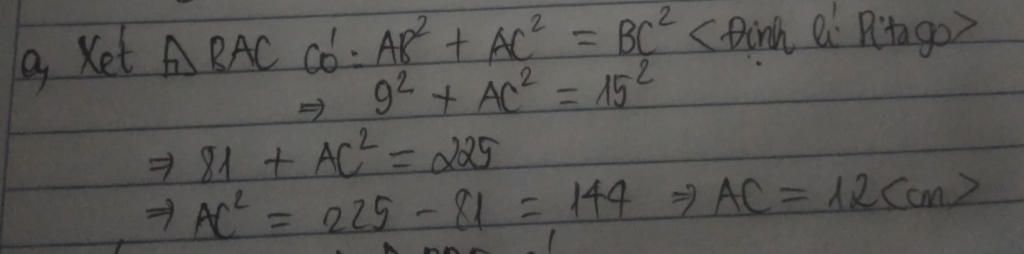 a, Xét △ BAC có: AB² + AC² = BC² <Định lí Pitago>
⇒ 9² + AC² = 15²
⇒ 81 + AC² = 225
⇒ AC² = 225 - 81 = 144 ⇒ AC = 12 <cm>